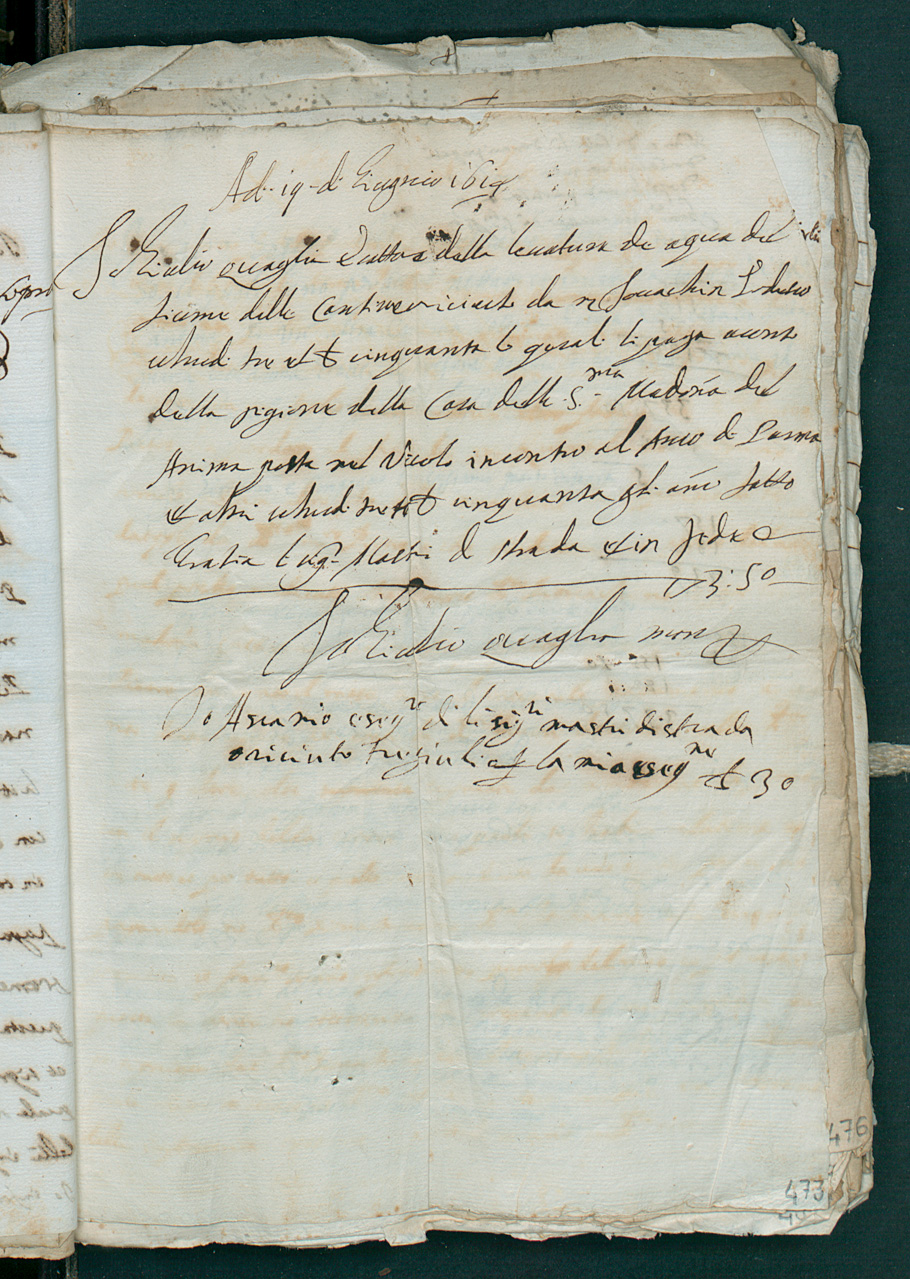 Adi 19 di Giugnio 1614
Io Giulio quaglia esattore della levatura de aqua del
fiume delle Cantine ricieuto da m Jovachin Todesco
schudi tre et b cinquanta le quali li paga a conto
della pigione della Casa delle S.ma Madona del
Anima posta nel Vicolo incontro al Arco de Parma
et altri schudi tre et b cinquanta gli ano fatto
Gratia li sig.ri Mastri di strada et in fede
▽3:50
Io Giulio quaglia mano
Io Ascanio eseq.re di li sig.ri mastri di strada
o riciuto tre giulii p la mia eseq.ne b 30
476
473